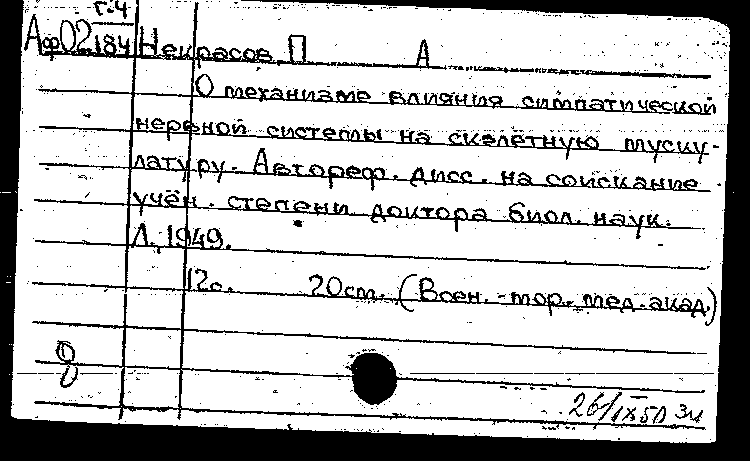 Г.4
Аф02184 Некрасов, П А
О механизме влияния симпатической
нервной системы на скелетную муску-
латуру. Автореф. дисс. на соискание
учён. степени доктора биол. наук.
Л., 1949.
12с. 20см. (Воен.-мор. мед. акад.)
26/IX50